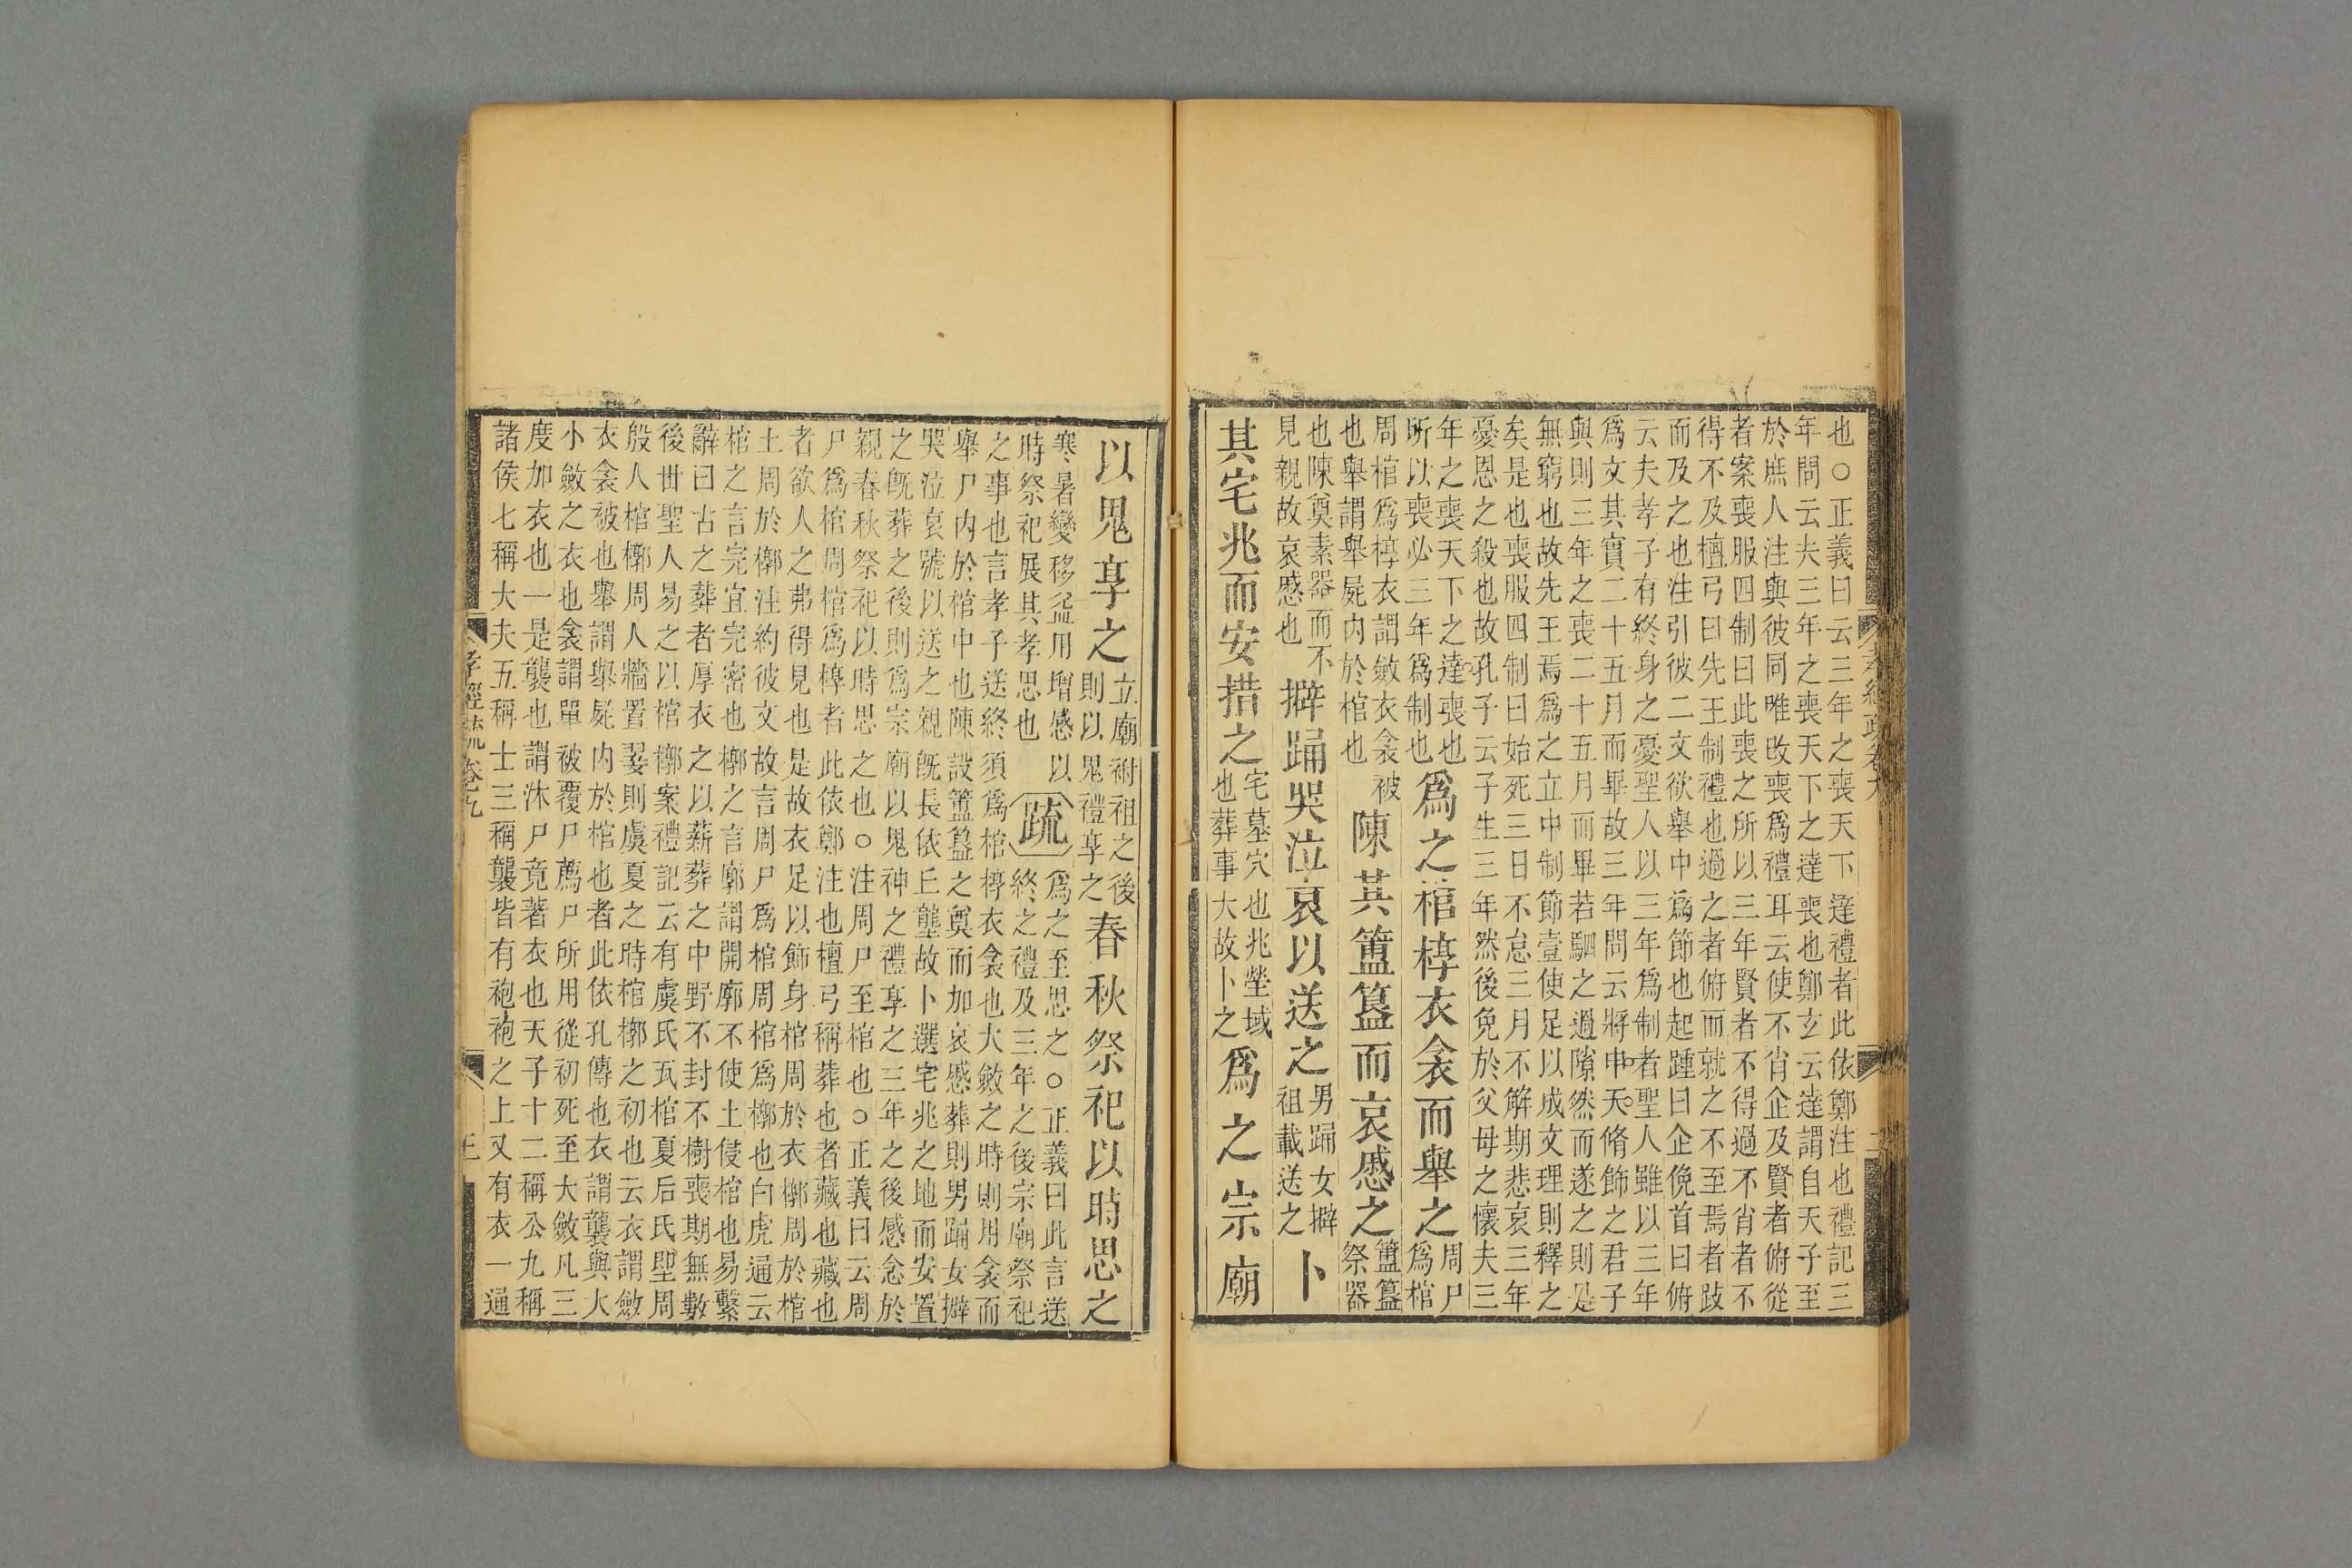 也○正義曰云三年之喪天下達禮者此依鄭注也禮記三
年問云夫三年之喪天下之達喪也鄭玄云達謂自天子至
於庶人注與彼同唯改喪爲禮耳云使不肖企及賢者俯從
者案喪服四制曰此喪之所以三年賢者不得過不肖者不
得不及檀弓曰先王制禮也過之者俯而就之不至焉者跂
而及之也注引彼二文欲舉中爲節也起踵曰企俛首曰俯
云夫孝子有終身之憂聖人以三年爲制者聖人雖以三年
爲文其實二十五月而畢故三年問云將申天脩飾之君子
與則三年之喪二十五月而畢若駟之過隙然而遂之則是
無窮也故先王焉爲之立中制節壹使足以成文理則釋之
矣是也喪服四制曰始死三日不怠三月不解期悲哀三年
憂恩之殺也故孔子云子生三年然後免於父母之懷夫三
年之喪天下之達喪也
所以喪必三年爲制也
爲之棺椁衣衾而舉之
周尸
爲棺
周棺爲椁衣謂斂衣衾被
也舉謂舉屍内於棺也
陳其簠簋而哀慼之
簠簋
祭器
也陳奠素器而不
見親故哀慼也
擗踊哭泣哀以送之
男踊女擗
祖載送之
卜
其宅兆而安措之
宅墓穴也兆塋域
也葬事大故卜之
爲之宗廟
以鬼享之
立廟祔祖之後
則以鬼禮享之
春秋祭祀以時思之
寒暑變移益用增感以
時祭祀展其孝思也
疏
爲之至思之○正義曰此言送
終之禮及三年之後宗廟祭祀
之事也言孝子送終須爲棺椁衣衾也大斂之時則用衾而
舉尸内於棺中也陳設簠簋之奠而加哀慼葬則男踊女擗
哭泣哀號以送之親既長依丘壟故卜選宅兆之地而安置
之既葬之後則爲宗廟以鬼神之禮享之三年之後感念於
親春秋祭祀以時思之也○注周尸至棺也○正義曰云周
尸爲棺周棺爲椁者此依鄭注也檀弓稱葬也者藏也藏也
者欲人之弗得見也是故衣足以飾身棺周於衣槨周於棺
土周於槨注約彼文故言周尸爲棺周棺爲槨也白虎通云
棺之言完宜完密也槨之言廓謂開廓不使土侵棺也易繫
辭曰古之葬者厚衣之以薪葬之中野不封不樹喪期無數
後世聖人易之以棺槨案禮記云有虞氏瓦棺夏后氏堲周
殷人棺槨周人牆置翣則虞夏之時棺槨之初也云衣謂斂
衣衾被也舉謂舉屍内於棺也者此依孔傳也衣謂襲與大
小斂之衣也衾謂單被覆尸薦尸所用從初死至大斂凡三
度加衣也一是襲也謂沐尸竟著衣也天子十二稱公九稱
諸侯七稱大夫五稱士三稱襲皆有袍袍之上又有衣一通
孝經疏卷九